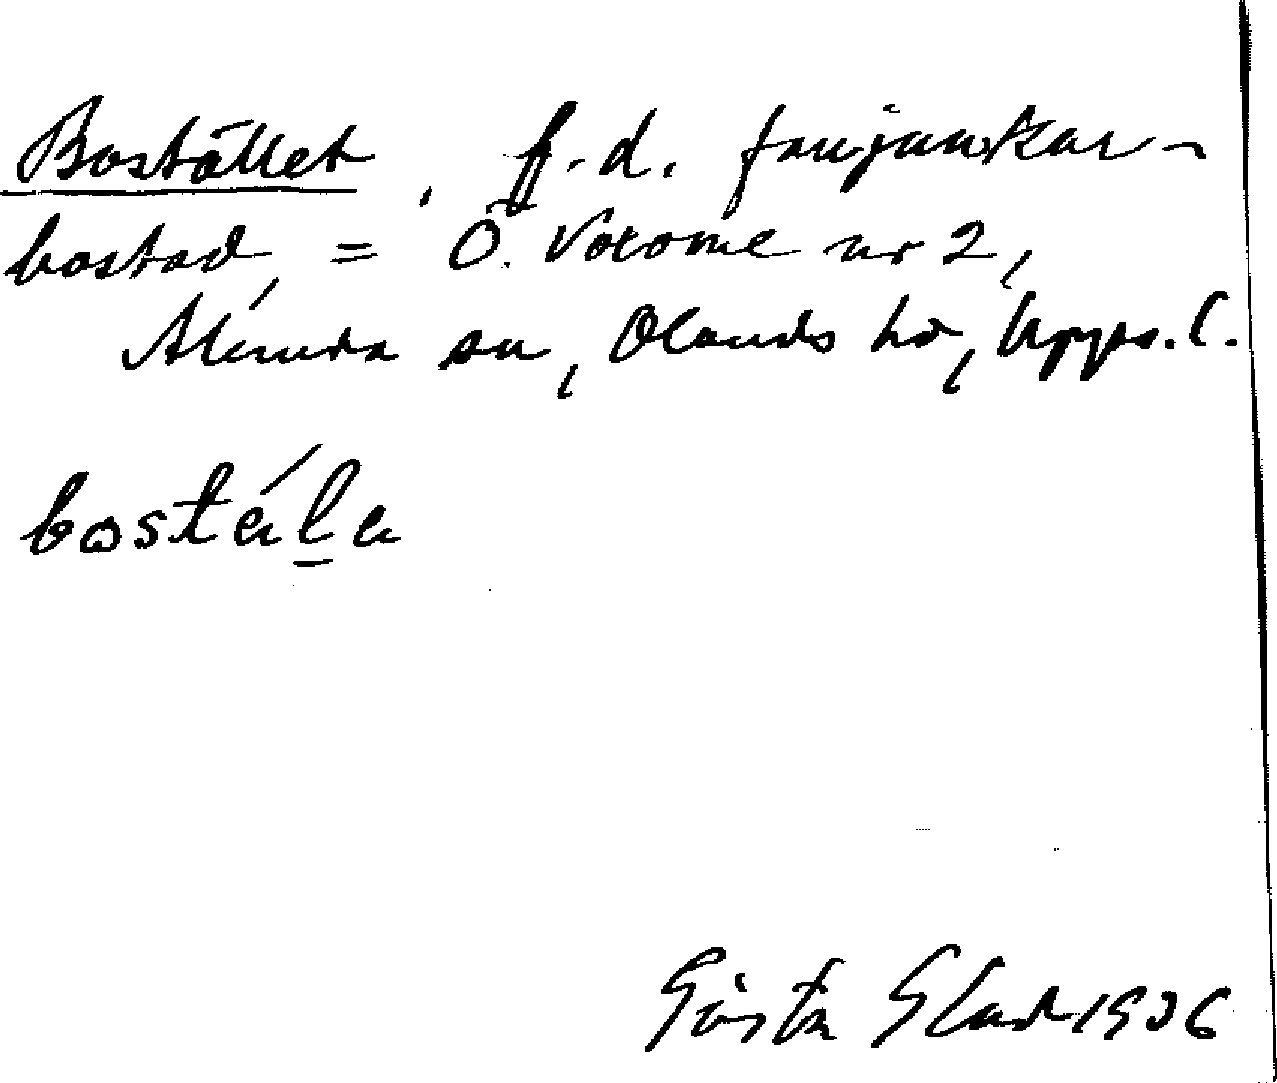 Bostället, f.d. fanjunkar-
bostad, = Ö. Voxome nr 2,
Alunda sn, Olands hd, Upps. l.
bostéla
Gösta Glad 1936